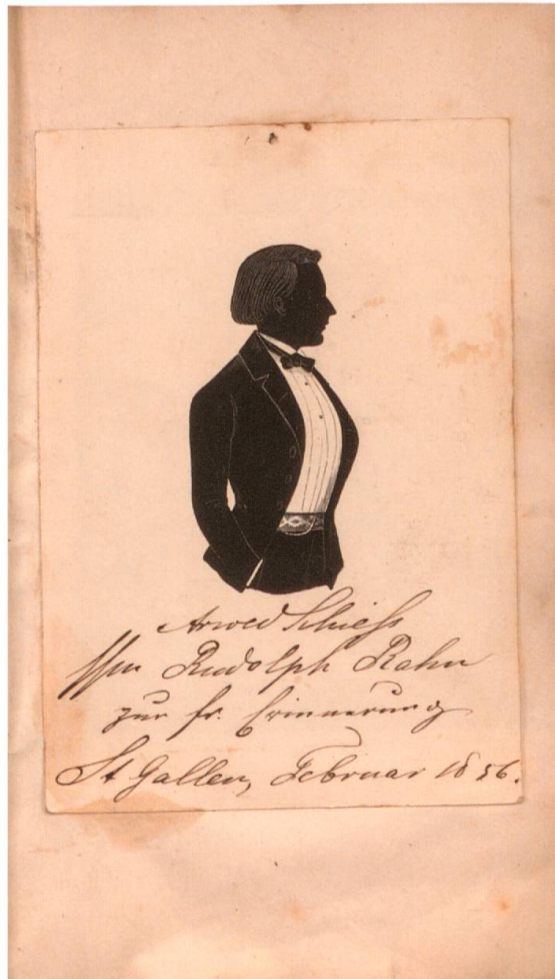 Arwed Schiess
Rudolph Rahn
zur fr. Erinnerung
St Gallen, Februar 1856.